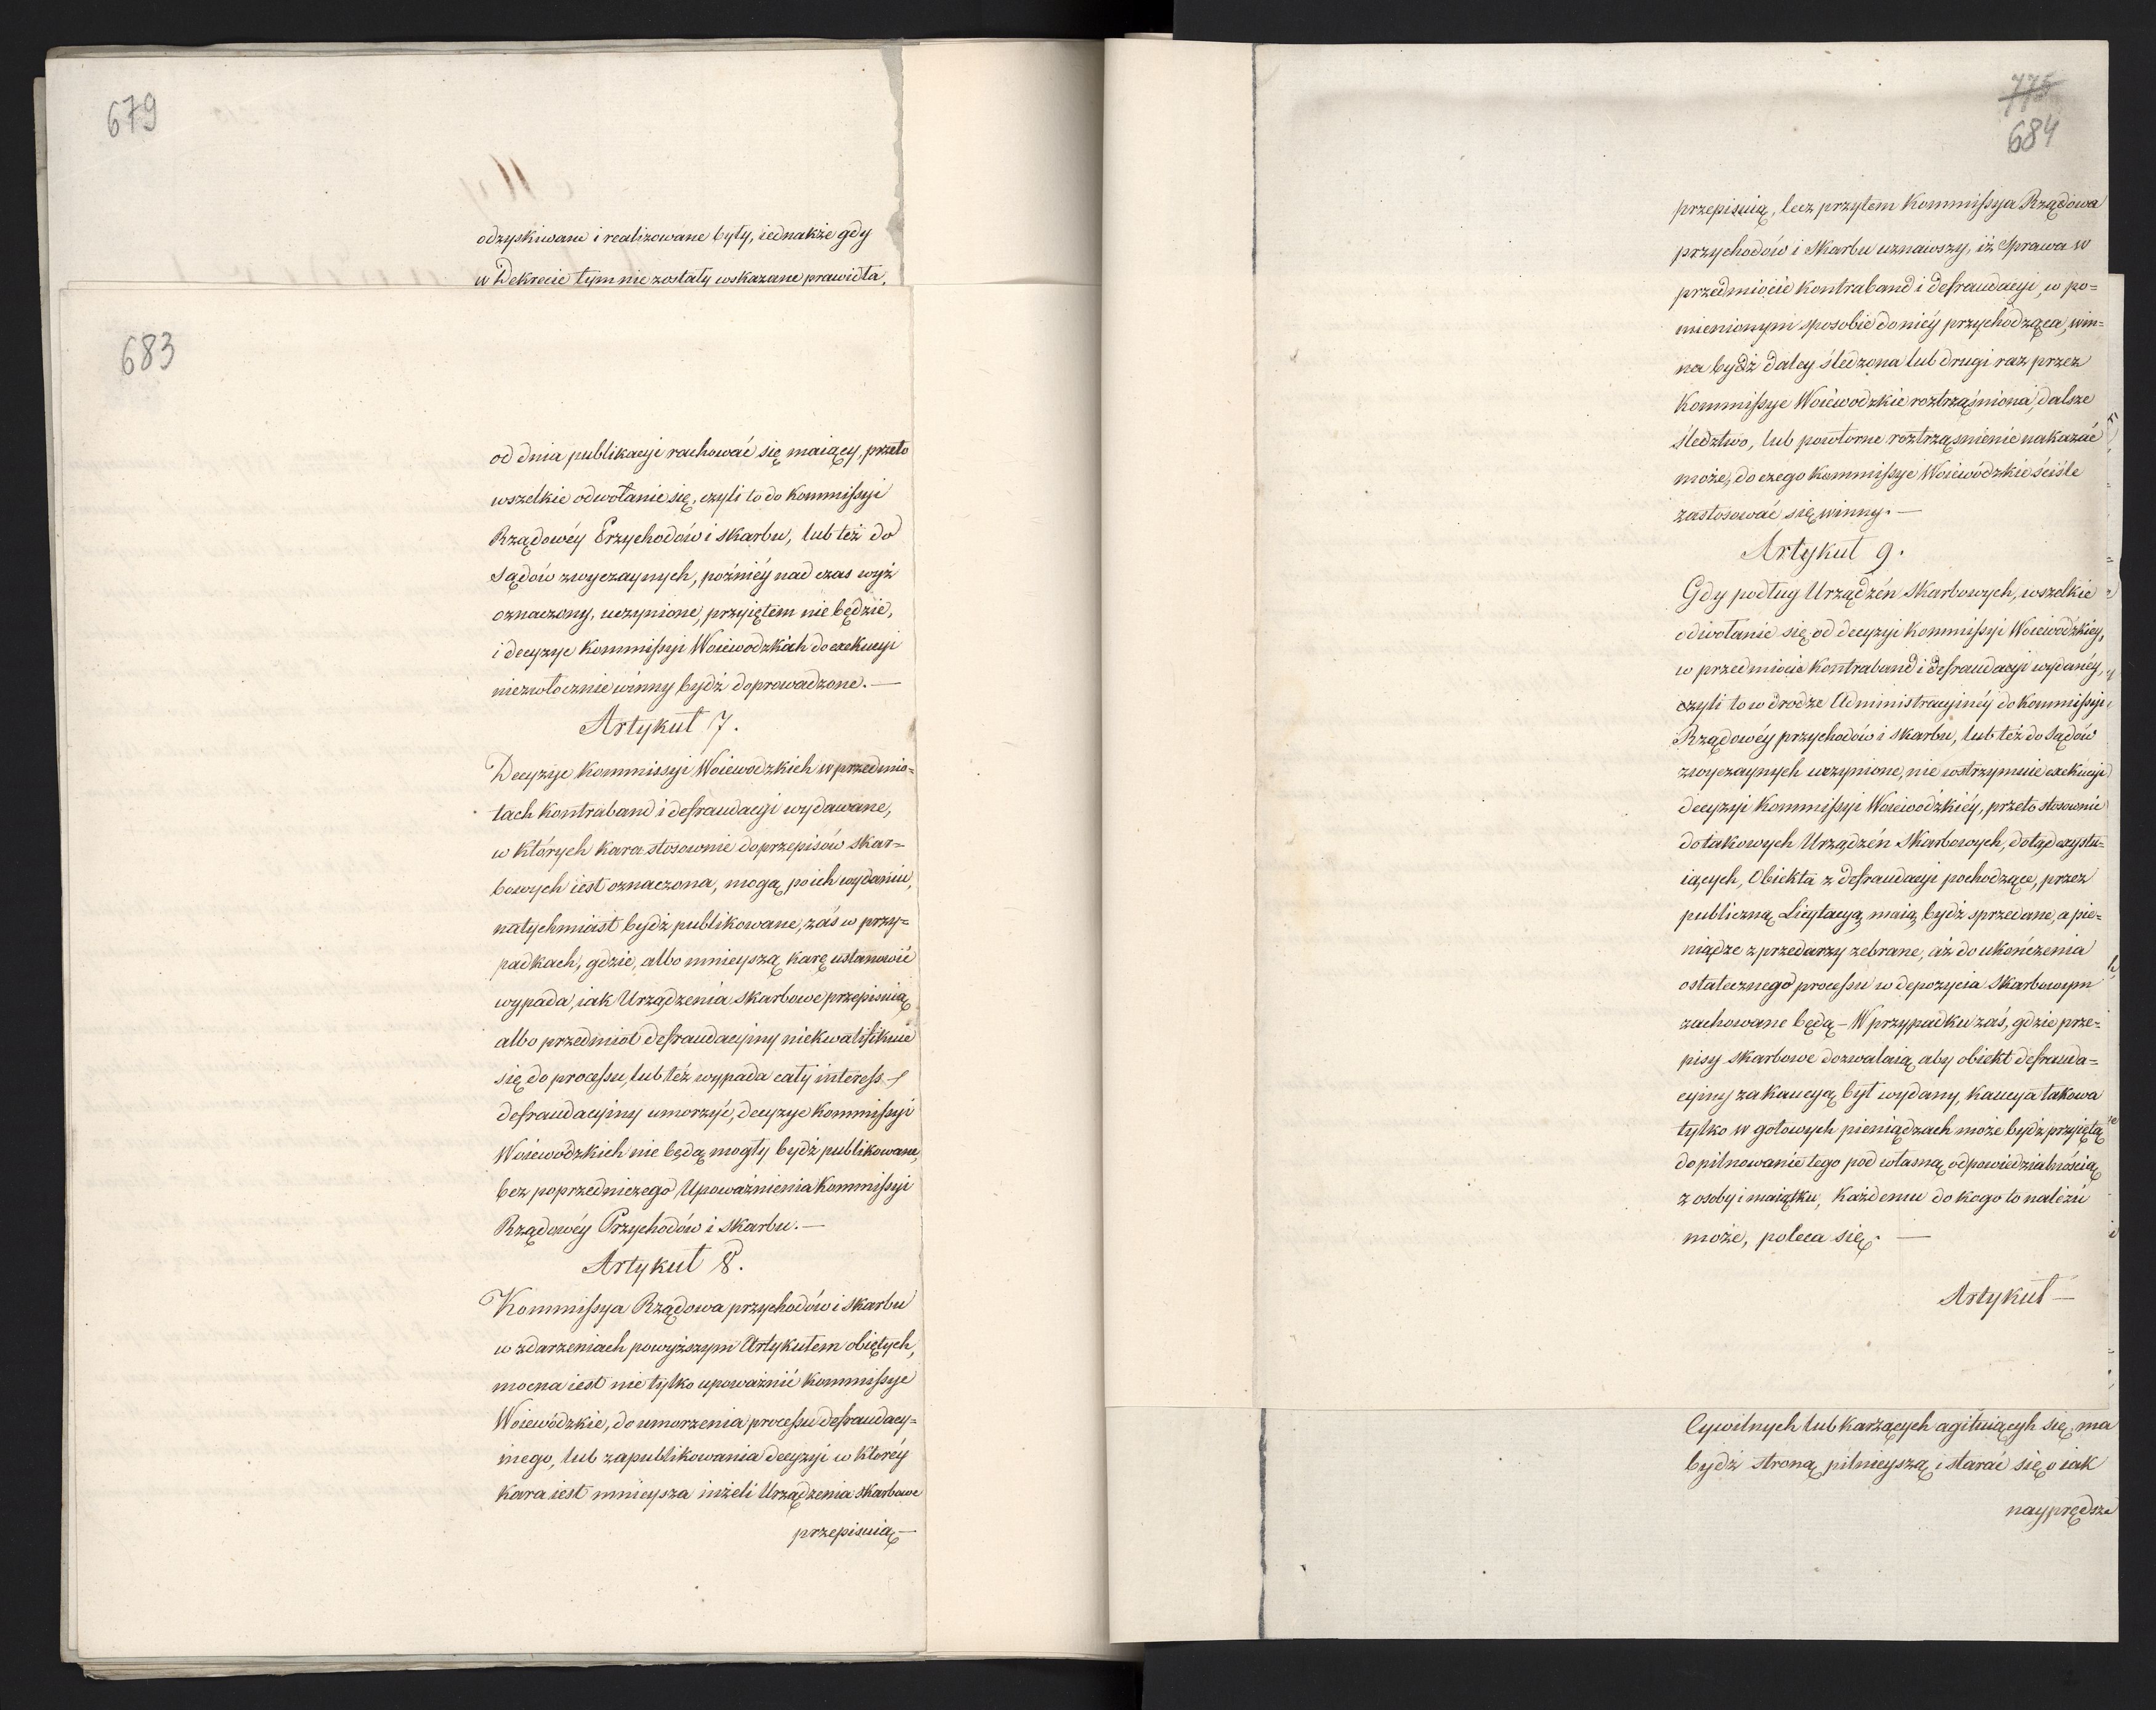 679
odzyskiwane i realizowane były, iednakże gdy
w Dekrecie tym nie zostały wskazane prawidła,
683
od dnia publikacyi rachować się maiący, przeto
wszelkie odwołanie się, czyli to do Kommissyi
Rządowéy Przychodów i Skarbu, lub też do
Sądów zwyczaynych, poźniéy nad czas wyż
oznaczony, uczynione, przyiętem nie będzie,
i decyzye Kommissyi Woiewodzkich do exekucyi
niezwłocznie winny bydź doprowadzone. —
Artykuł 7.
Decyzye Kommissyi Woiewodzkich w przedmio=
tach Kontraband i defraudacyi wydawane,
w których kara stosownie do przepisów skar=
bowych iest oznaczona, mogą po ich wydaniu,
natychmiast bydź publikowane, zaś w przy=
padkach, gdzie, albo mnieyszą karę ustanowić
wypada, iak Urządzenia skarbowe przepisuią
albo przedmiot defraudacyiny niekwalifikuie
się do processu, lub też wypada cały interess
defraudacyiny umorzyć, decyzye Kommissyi
Woiewodzkich nie będą mogły bydź publikowane,
bez poprzedniczego Upoważnienia Kommissyi
Rządowéy Przychodów i Skarbu. —
Artykuł 8.
Kommissya Rządowa przychodów i skarbu
w zdarzeniach powyższym Artykułem obiętych,
mocna iest nie tylko upoważnić Kommissye
Woiewódzkie, do umorzenia processu defraudacy=
inego, lub zapublikowania decyzyi w któréy
kara iest mnieysza niżeli Urządzenia skarbowe
przepisuią —
775
684
przepisuią, lecz przytem Kommissya Rządowa
przychodów i Skarbu uznawszy, iż Sprawa w
przedmiocie kontraband i defraudacyi, w po=
mienionym sposobie do niéy przychodząca, win=
na bydź daléy śledzona lub drugi raz przez
Kommissye Woiewodzkie roztrząśniona, dalsze
śledztwo, lub powtorne roztrząśnienie nakazać
może, do czego Kommissye Woiewódzkie ściśle
zastosować się winny. —
Artykuł 9.
Gdy podług Urządzeń Skarbowych, wszelkie
odwołanie się od decyzyi Kommissyi Woiewodzkiey,
w przedmiocie Kontraband i defraudacyi wydanéy,
czyli to w drodze Administracyinéy do Kommissyi
Rządowéy przychodów i skarbu, lub też do Sądów
zwyczaynych uczynione, nie wstrzymuie exekucyi
decyzyi Kommissyi Woiewódzkiéy, przeto stosownie
do takowych Urządzeń Skarbowych, dotąd exystu=
iących, Obiekta z defraudacyi pochodzące, przez
publiczną Licytacyą maią bydź sprzedane, a pie=
niądze z przedarzy zebrane, aż do ukończenia
ostatecznego processu w depozycie Skarbowym
zachowane będą — W przypadku zaś, gdzie prze=
pisy skarbowe dozwalaią, aby obiekt defrauda=
cyiny za kaucyą był wydany, kaucya takowa
tylko w gotowych pieniądzach może bydź przyiętą
dopilnowanie tego pod własną odpowiedzialnością
z osoby i maiątku, każdemu do kogo to należeć
może, poleca się. —
Artykuł —
Cywilnych lub karzących agituiącyh się, ma
bydź stroną pilnieyszą i starać się o iak
nayprędsze